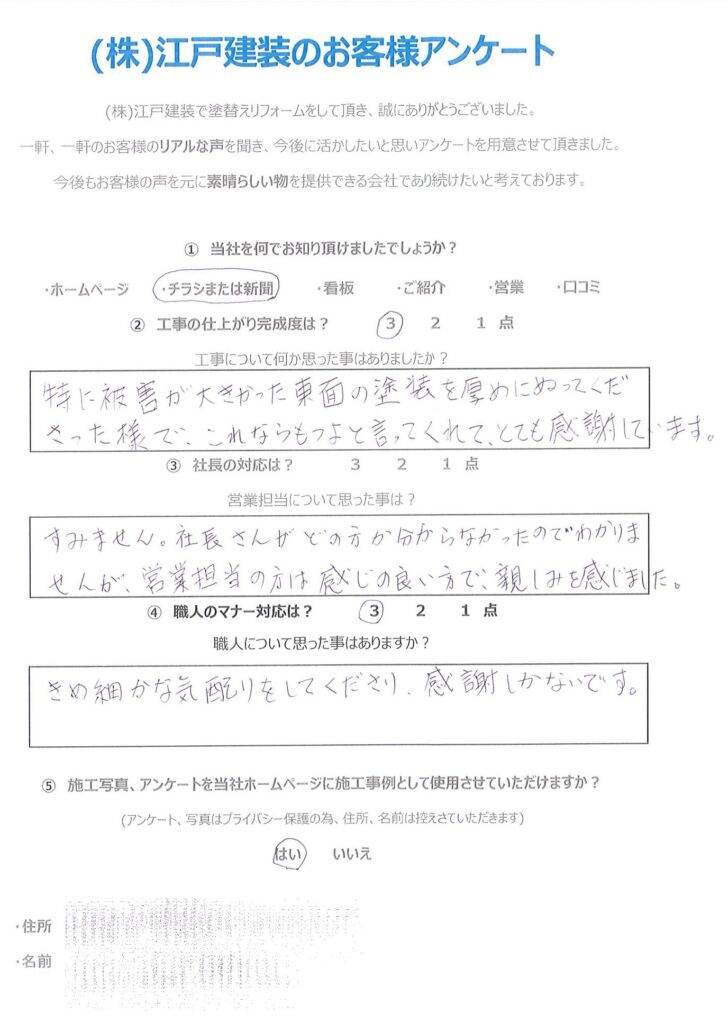 (株)江戸建装のお客様アンケート
(株)江戸建装で塗替えリフォームをして頂き、誠にありがとうございました。
一軒、一軒のお客様のリアルな声を聞き、今後に活かしたいと思いアンケートを用意させて頂きました。
今後もお客様の声を元に素晴らしい物を提供できる会社であり続けたいと考えております。
① 当社を何でお知り頂けましたでしょうか？
・ホームページ ・チラシまたは新聞 ・看板 ・ご紹介 ・営業 ・口コミ
② 工事の仕上がり完成度は？ 3 2 1 点
工事について何か思った事はありましたか？
特に被害が大きかった東面の塗装を厚めにぬってくだ
さった様で、これならもつよと言ってくれて、とても感謝しています。
③ 社長の対応は？ 3 2 1 点
営業担当について思った事は？
すみません。社長さんがどの方か分からなかったのでわかりま
せんが、営業担当の方は感じの良い方で、親しみを感じました。
④ 職人のマナー対応は？ 3 2 1 点
職人について思った事はありますか？
きめ細かな気配りをしてくださり、感謝しかないです。
⑤ 施工写真、アンケートを当社ホームページに施工事例として使用させていただけますか？
(アンケート、写真はプライバシー保護の為、住所、名前は控えさていただきます)
はい いいえ
・住所
・名前